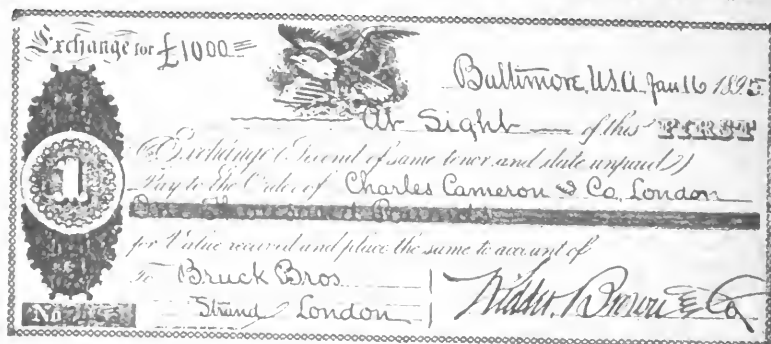 Exchange for £1000=
Baltimore, USA. Jan 16 1895
At Sight of this FIRST
Exchange (Second of same tenor and date unpaid)
Pay to the Order of Charles Cameron & Co, London
One Thousand Pounds
for Value received and place the same to account of
1
To Bruck Bros.
Strand London
Brown & Co
No